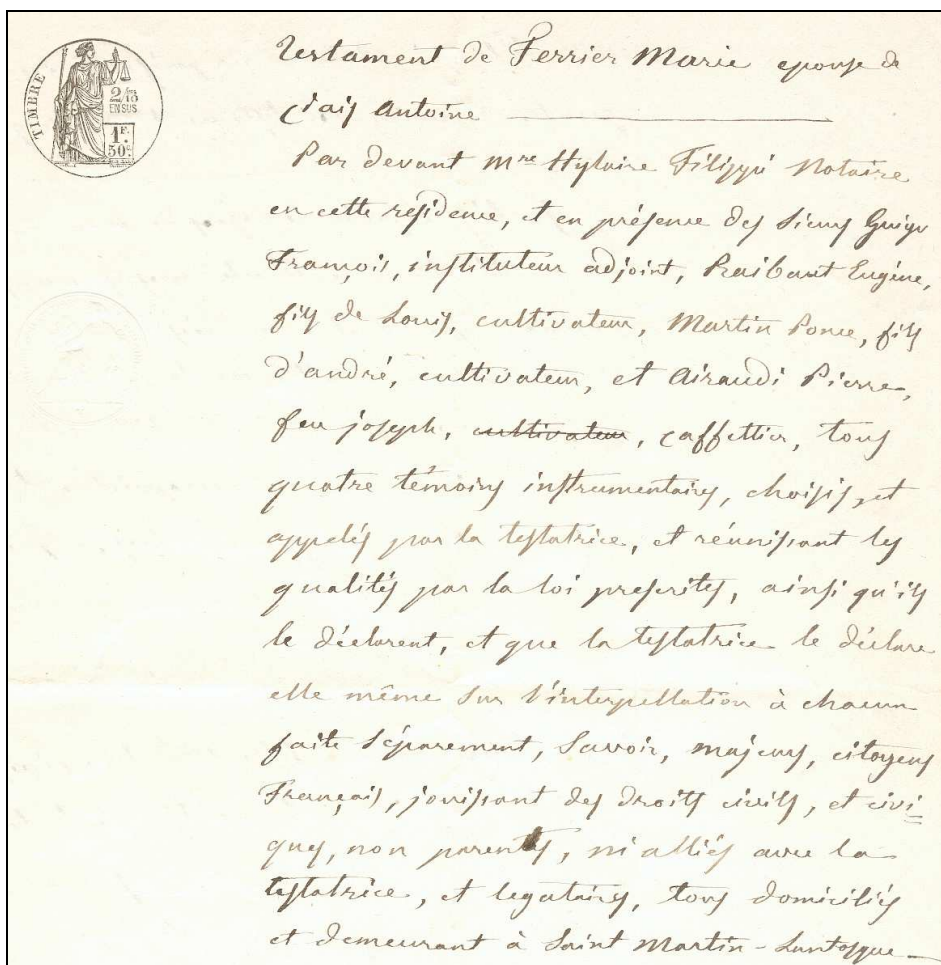 TIMBRE
2/10 EN SUS
1F. 50c.
Testament de Ferrier Marie epouse de
Ciais Antoine
Par devant Mre Hylaire Filippi Notaire
en cette résidence, et en présence des Sieurs Guigo
François, instituteur adjoint, Raibaut Eugène,
fils de Louis, cultivateur, Martin Ponce, fils
d'andré, cultivateur, et Airaudi Pierre,
feu joseph, cultivateur, caffettier, tous
quatre témoins instrumentaires, choisis, et
appelés par la testatrice, et réunissant les
qualités par la loi prescrites, ainsi qu'ils
le déclarent, et que la testatrice le déclare
elle même sur l'interpellation à chacun
faite séparement, Savoir, majeurs, citoyens
Français, jouissant des droits civils, et civi
ques, non parents, ni alliés avec la
testatrice, et legataires, tous domiciliés
et demeurant à Saint Martin-Lantosque